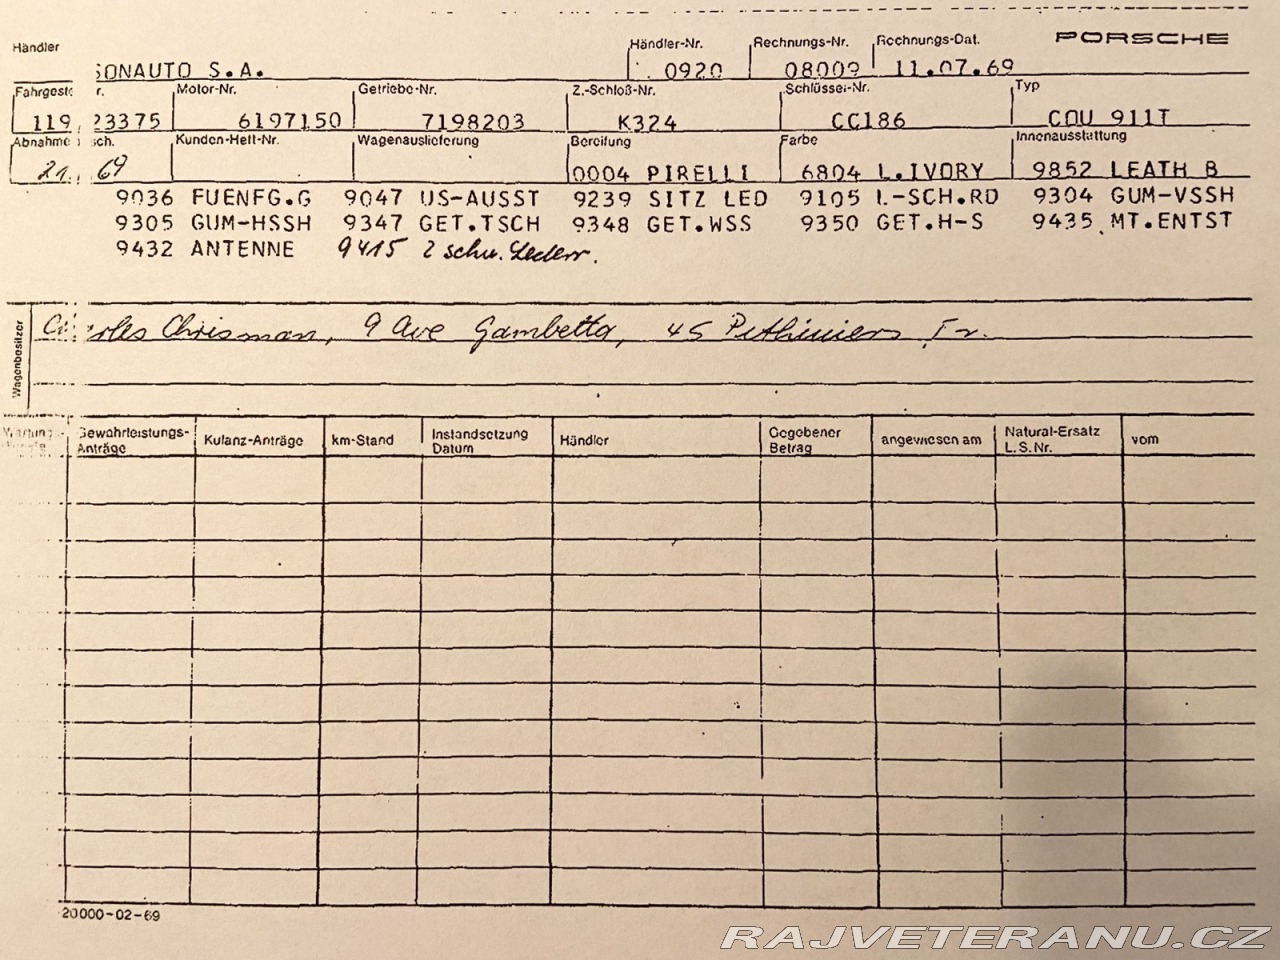 Händler Händler-Nr. Rechnungs-Nr. Rechnungs-Dat. PORSCHE
SONAUTO S.A. 0920 08009 11.07.69
Fahrgest r. Motor-Nr. Getriebe-Nr. Z.-Schloß-Nr. Schlüssel-Nr. Typ
119 23375 6197150 7198203 K324 CC186 COU 911T
Abnahme sch. Kunden-Heft-Nr. Wagenauslieferung Bereifung Farbe Innenausstattung
21. 69 0004 PIRELLI 6804 L.IVORY 9852 LEATH B
9036 FUENFG.G 9047 US-AUSST 9239 SITZ LED 9105 L-SCH.RD 9304 GUM-VSSH
9305 GUM-HSSH 9347 GET.TSCH 9348 GET.WSS 9350 GET.H-S 9435 MT.ENTST
9432 ANTENNE 9415 2 schw. Lederr.
Wagenbesitzer
Charles Chrisman, 9 Ave Gambetta, 45 Pithiviers Fr.
Wartungs- Gewährleistungs-Anträge Kulanz-Anträge km-Stand Instandsetzung Datum Händler Gegebener Betrag angewiesen am Natural-Ersatz L.S.Nr. vom
20000-02-69
RAJVETERANU.CZ